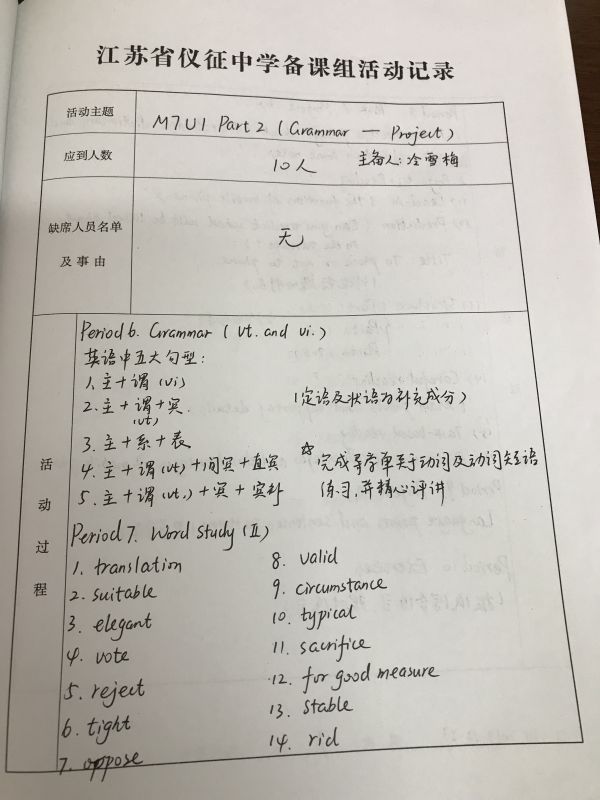 江苏省仪征中学备课组活动记录
活动主题
M7U1 Part 2 (Grammar — Project)
应到人数
10人
主备人:冷雪梅
缺席人员名单
及事由
无
活动过程
Period 6. Grammar (vt. and vi.)
英语中五大句型:
1. 主+谓(vi)
2. 主+谓+宾. (定语及状语为补充成分)
(vt)
3. 主+系+表
4. 主+谓(vt)+间宾+直宾 ☆ 完成导学单关于动词及动词短语
5. 主+谓(vt.)+宾+宾补 练习,并精心评讲
Period 7. Word Study (Ⅱ)
1. translation
2. suitable
3. elegant
4. vote
5. reject
6. tight
7. oppose
8. valid
9. circumstance
10. typical
11. sacrifice
12. for good measure
13. stable
14. rid